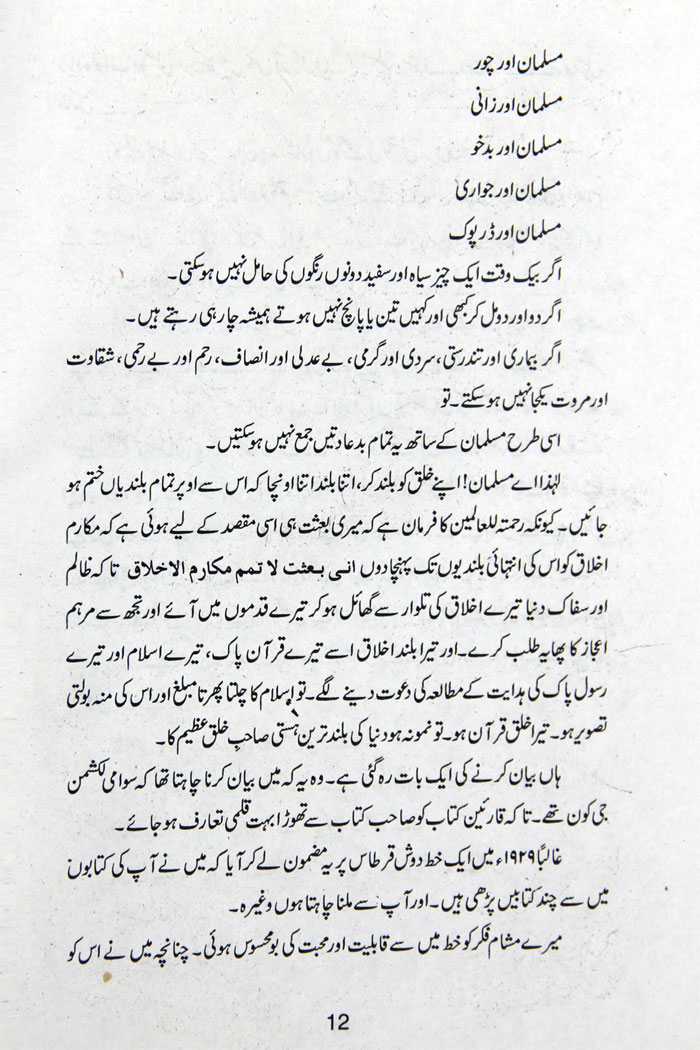 مسلمان اور چور
مسلمان اور زانی
مسلمان اور بدخو
مسلمان اور جواری
مسلمان اور ڈرپوک
اگر بیک وقت ایک چیز سیاہ اور سفید دونوں رنگوں کی حامل نہیں ہوسکتی۔
اگر دو اور دو مل کر کبھی اور کہیں تین یا پانچ نہیں ہوتے ہمیشہ چار ہی رہتے ہیں۔
اگر بیماری اور تندرستی، سردی اور گرمی، بے عدلی اور انصاف، رحم اور بے رحمی، شقاوت
اور مروت یکجا نہیں ہوسکتے۔ تو
اسی طرح مسلمان کے ساتھ یہ تمام بد عادتیں جمع نہیں ہوسکتیں۔
لہٰذا اے مسلمان! اپنے خلق کو بلند کر، اتنا بلند اتنا اونچا کہ اس سے اوپر تمام بلندیاں ختم ہو
جائیں۔ کیونکہ رحمتہ للعالمین کا فرمان ہے کہ میری بعثت ہی اسی مقصد کے لیے ہوئی ہے کہ مکارم
اخلاق کو اس کی انتہائی بلندیوں تک پہنچا دوں انی بعثت لا تمم مکارم الاخلاق تا کہ ظالم
اور سفاک دنیا تیرے اخلاق کی تلوار سے گھائل ہو کر تیرے قدموں میں آئے اور تجھ سے مرہم
اعجاز کا پھایہ طلب کرے۔ اور تیرا بلند اخلاق اسے تیرے قرآن پاک، تیرے اسلام اور تیرے
رسول پاک کی ہدایت کے مطالعہ کی دعوت دینے لگے۔ تو اسلام کا چلتا پھرتا مبلغ اور اس کی منہ بولتی
تصویر ہو۔ تیرا خلق قرآن ہو۔ تو نمونہ ہو دنیا کی بلند ترین ہستی صاحبِ خلق عظیم کا۔
ہاں بیان کرنے کی ایک بات رہ گئی ہے۔ وہ یہ کہ میں بیان کرنا چاہتا تھا کہ سوامی لکشمن
جی کون تھے۔ تا کہ قارئین کتاب کو صاحب کتاب سے تھوڑا بہت قلمی تعارف ہو جائے۔
غالباً ۱۹۲۹ء میں ایک خط دوش قرطاس پر یہ مضمون لے کر آیا کہ میں نے آپ کی کتابوں
میں سے چند کتابیں پڑھی ہیں۔ اور آپ سے ملنا چاہتا ہوں وغیرہ۔
میرے مشام فکر کو خط میں سے قابلیت اور محبت کی بو محسوس ہوئی۔ چنانچہ میں نے اس کو
12